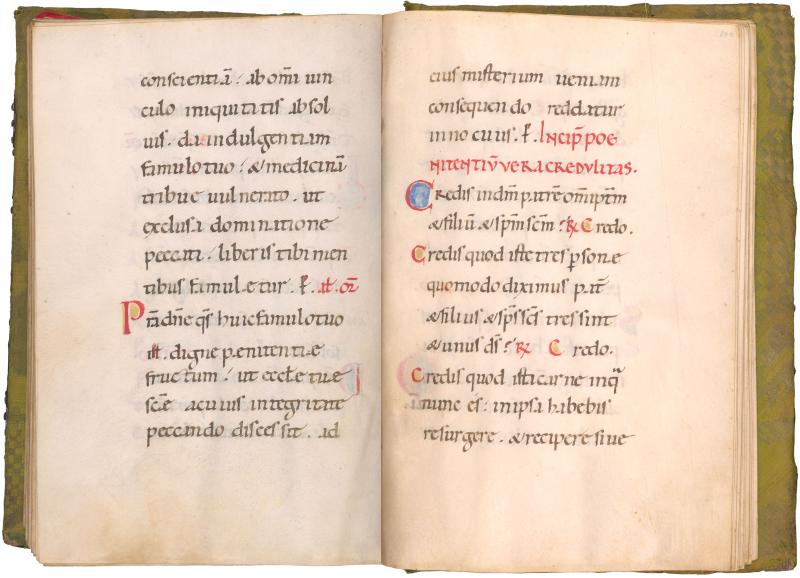 conscientiā· ab om̄i uin
culo iniquitatis absol
uis· da indulgentiam
famulo tuo· & medicinā
tribue uulnerato· ut
exclusa dominatione
peccati· liberis tibi men
tibus famuletur· P̄· al̄ or̄
Pra dn̄e qs̄ huic famulo tuo
ill̄· digne penitentie
fructum· ut eccl̄e tue
sc̄e a cuius integritate
peccando discessit· ad
eius misterium ueniam
consequendo reddatur
innocuus· P̄· Incip̄ poe
nitentiū uera credulitas·
Credis in dm̄ patrē om̄iptm̄
& filiū & spm̄ scm̄? R̄ Credo·
Credis quod iste tres persone
quomodo diximus pat̄
& filius & sps̄ scs̄ tres sint
& unus ds̄? R̄ Credo·
Credis quod isti carne in qua
nunc es· in ipsa habebis
resurgere· & recipere siue